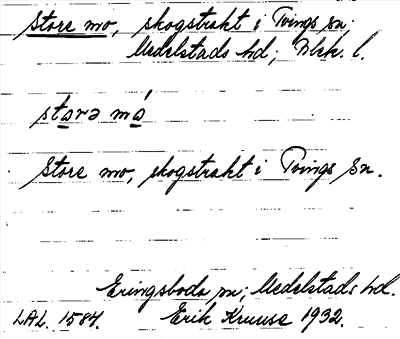 Store mo, skogstrakt i Tvings sn;
Medelstads hd; Blek. l.
stərə má
Store mo, skogstrakt i Tvings sn.
Eringsboda sn; Medelstads hd.
LAL. 1584. Erik Kruuse 1932.